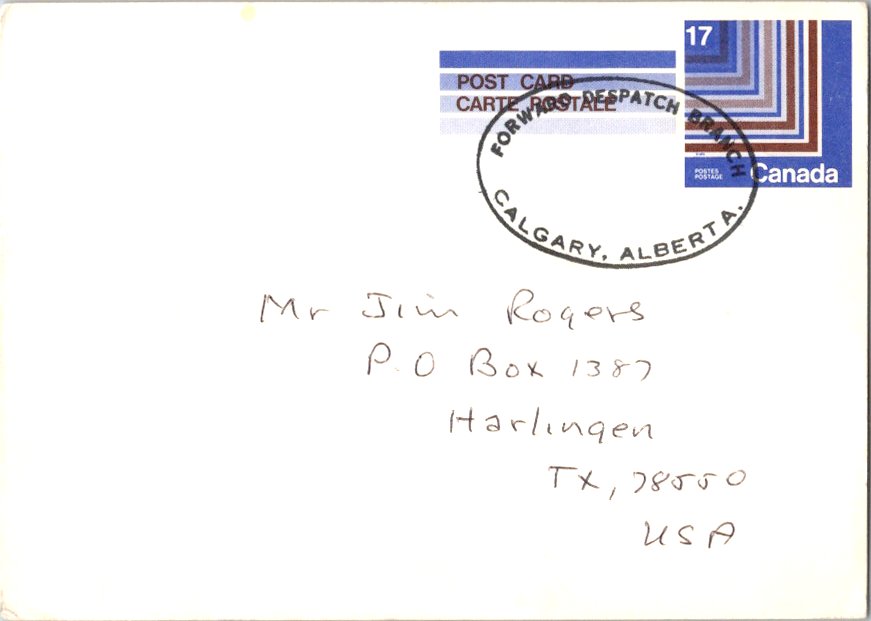 17
POST CARD
CARTE POSTALE
FORWARD DESPATCH BRANCH
POSTES
POSTAGE
Canada
CALGARY, ALBERTA.
Mr Jim Rogers
P.O Box 1387
Harlingen
TX, 78550
USA